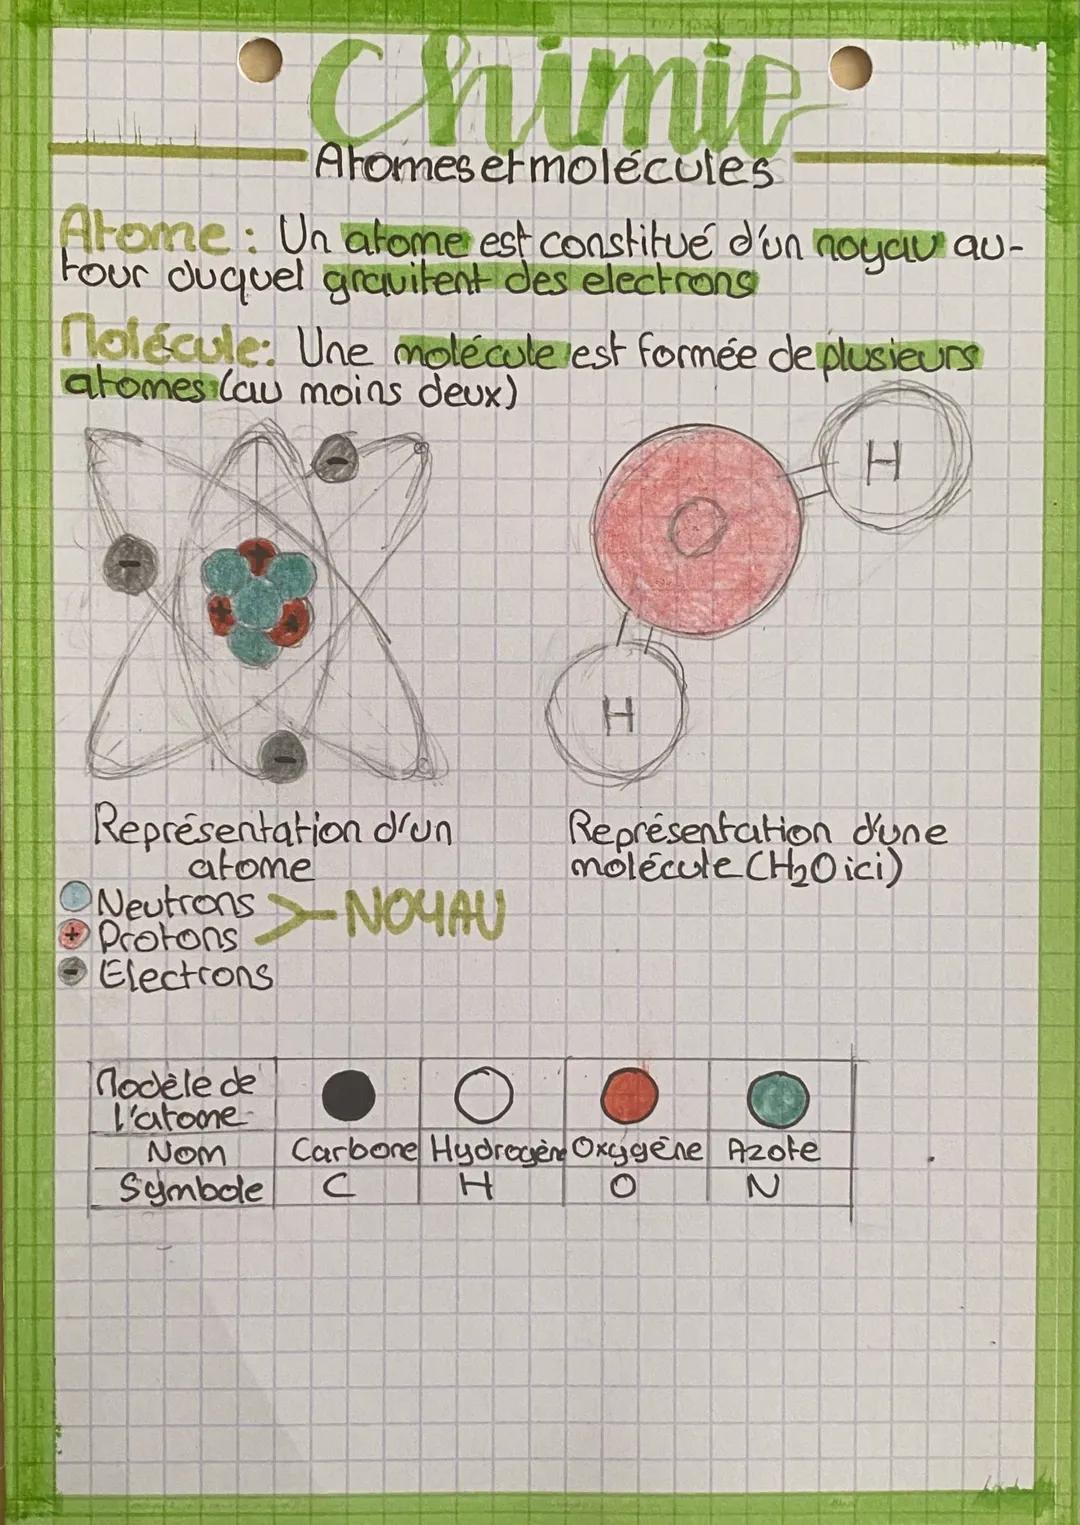 Chimie
Atomes et molécules
Atome : Un atome est constitué d'un noyau au-
tour duquel gravitent des electrons
Molécule: Une molécule est formée de plusieurs
atomes (au moins deux)
-
H
-
+
O
+
+
H
-
Représentation d'un
atome
Représentation d'une
molécule (H₂O ici)
Neutrons
NOYAU
+ Protons
- Electrons
Modèle de
l'atome
Nom Carbone Hydrogène Oxygène Azote
Symbole C H O N